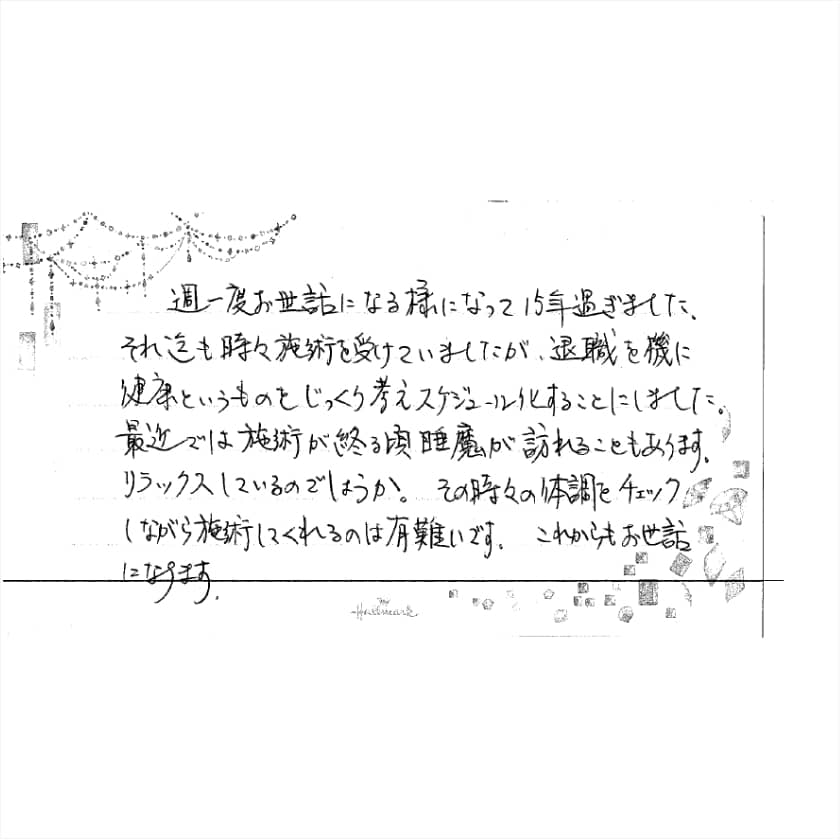 週一度お世話になる様になって15年過ぎました、
それ迄も時々施術を受けていましたが、退職を機に
健康というものをじっくり考えスケジュール化することにしました。
最近では施術が終る頃睡魔が訪れることもあります、
リラックスしているのでしょうか。 その時々の体調をチェック
しながら施術してくれるのは有難いです。 これからもお世話
になります、
Hallmark